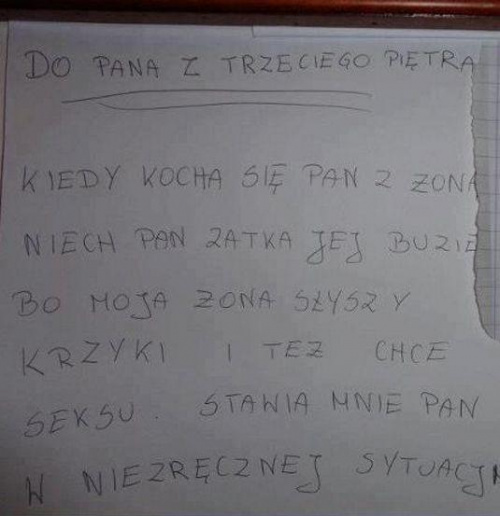 DO PANA Z TRZECIEGO PIĘTRA
KIEDY KOCHA SIĘ PAN Z ZONA
NIECH PAN ZATKA JEJ BUZIE
BO MOJA ZONA SŁYSZY
KRZYKI I TEZ CHCE
SEKSU. STAWIA MNIE PAN
W NIEZRĘCZNEJ SYTUACJI